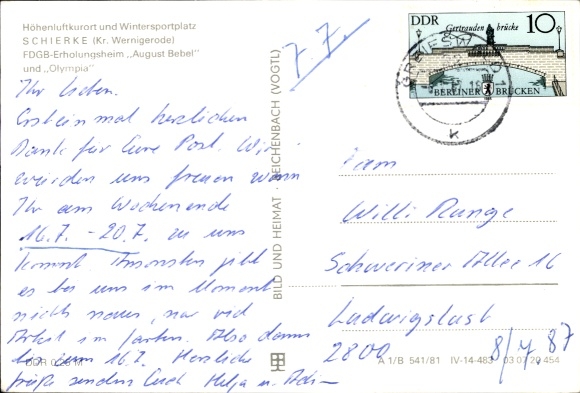 Höhenluftkurort und Wintersportplatz
SCHIERKE (Kr. Wernigerode)
FDGB-Erholungsheim „August Bebel"
und „Olympia"
7.7.
Ihr Lieben.
Erst einmal herzlichen
Dank für Eure Post. Wir
würden uns freuen wenn
Ihr am Wochenende
16.7. - 20.7. zu uns
kommt. Ansonsten gibt
es bei uns im Moment
nichts neues, nur viel
Arbeit im Garten. Also dann
bis zum 16.7. Herzliche
Grüße senden Euch Helga u.
BILD UND HEIMAT · REICHENBACH (VOGTL)
DDR
Gertraudenbrücke
10
BERLINER BRÜCKEN
K
Fam
Willi Runge
Schweriner Allee 16
Ludwigslust
2800
8/7.87
A 1/B 541/81 IV-14-483 03 07 20 454